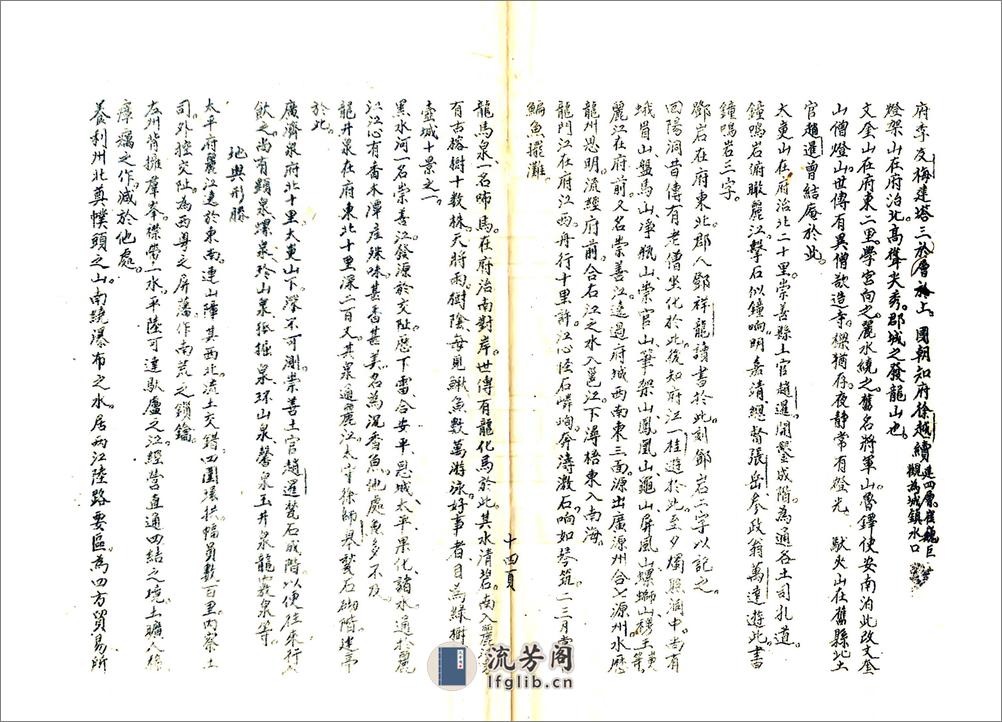 府李友梅建塔三層於上國朝知府徐越續建四層崔巍巨觀為城鎮水口
燈架山在府治北高聳夾秀郡城之發龍山也
文奎山在府東二里學宮向之麗水繞之舊名將軍山魯鐸使安南泊此改文奎
山僧燈山世傳有異僧欲造寺樑猶存夜靜常有燈光 獸火山在舊縣北土
官趙暹曾結庵於此
太東山在府治北二十里崇善縣土官趙暹開鑿成階為通各土司孔道
鐘鳴岩俯瞰麗江擊石似鐘响明嘉清總督張岳參政翁萬達遊此書
鐘鳴岩三字
鄧岩在府東北郡人鄧祥龍讀書於此刻鄧岩二字以記之
回陽洞昔傳有老僧坐化於此後知府江一桂遊於此至夕燭照洞中尚有
蛾眉山盤馬山淨瓶山崇官山筆架山鳳凰山龜山屏風山螺螄山
麗江在府前又名崇善江遶過府城西南東三面源出廣源州合七源州水歷
龍州思明流經府前合右江之水入邕江下潯梧東入南海
龍門江在府江西舟行十里許江心怪石嶙峋奔濤激石响如琴筑二三月
鳊魚擺灘
十四頁
龍馬泉一名啼馬在府治南對岸世傳有龍化馬於此其水清碧南入麗江
有古榕樹十數株天將雨樹陰每見鰍魚數萬游泳好事者目為綠樹
壺城十景之一
黑水河一名崇善江發源於交趾歷下雷合安平恩城太平果化諸水通於麗
江江心有香水潭產殊味甚香甚美名為沉香魚他處魚多不及
龍井泉在府東北十里深二百丈其泉通麗江太守徐師舉甃石砌階建亭
於此
廣濟泉府北十里太東山下深不可測崇善土官趙暹甃石成階以便往來行
飲之尚有顯泉螺泉玲山泉環山泉馨泉玉井泉龍泉等
地輿形勝
太平府麗江遶於東南連山障其西北流土交錯四圍環拱幅員數百里內察土
司外控交趾為西粵之屏藩作南荒之鎖鑰
左州背擁羣峯襟帶一水平陸可達馱盧之江經營直通四結之境土曠人稀
瘴癘之作減於他處
養利州北奠幞頭之山南繞瀑布之水居兩江陸路要區為四方貿易所
流芳阁
lfglib.cn